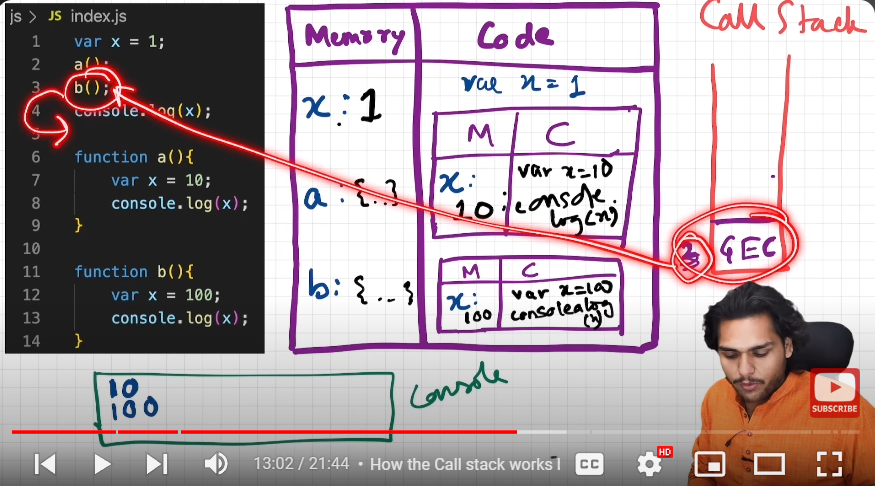 js > JS index.js
1 var x = 1;
2 a();
3 b();
4 console.log(x);
5
6 function a(){
7 var x = 10;
8 console.log(x);
9 }
10
11 function b(){
12 var x = 100;
13 console.log(x);
14 }
Memory
Code
x: 1
a: {..}
b: {...}
var x = 1
M C
x: 10
var x=10
console.
log(x)
M C
x: 100
var x=100
console.log
(x)
Call Stack
GEC
10
100
Console
SUBSCRIBE
13:02 / 21:44 • How the Call stack works
CC
HD